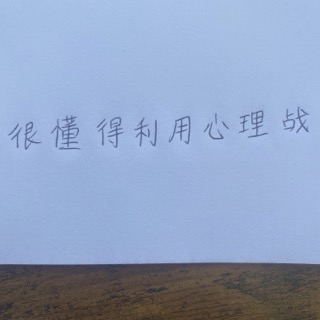 很懂得利用心理战